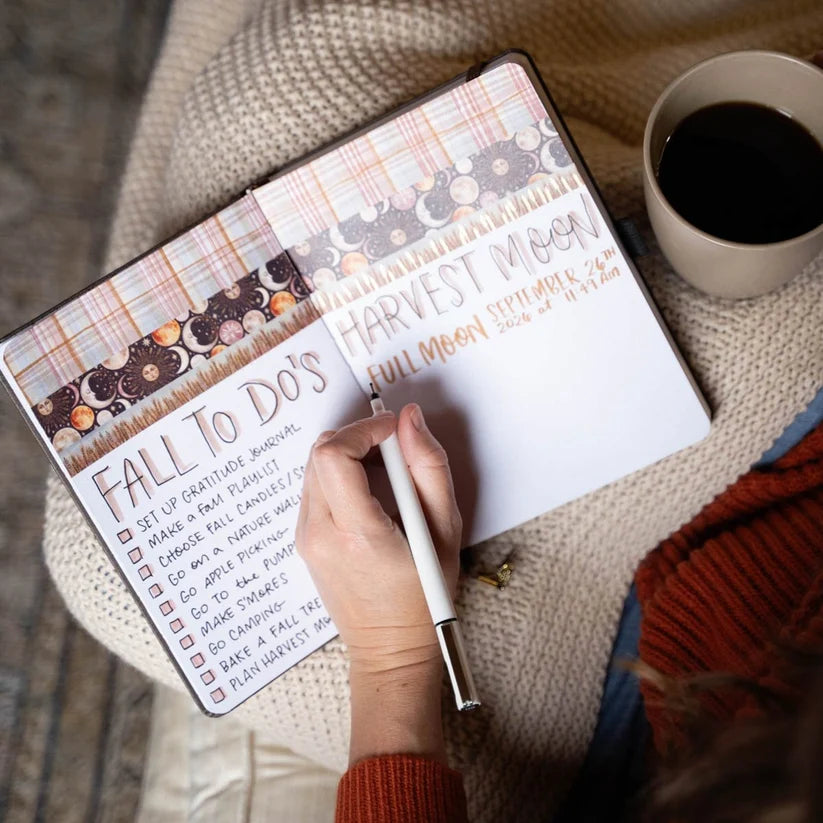 FALL TO DO'S
SET UP GRATITUDE JOURNAL
MAKE a FALL PLAYLIST
CHOOSE FALL CANDLES/
GO on a NATURE
GO APPLE PICKING
GO TO the
MAKE S'MORES
GO CAMPING
BAKE A FALL
PLAN HARVEST
HARVEST MOON
FULL MOON SEPTEMBER 26TH
2026 at 11:49 AM